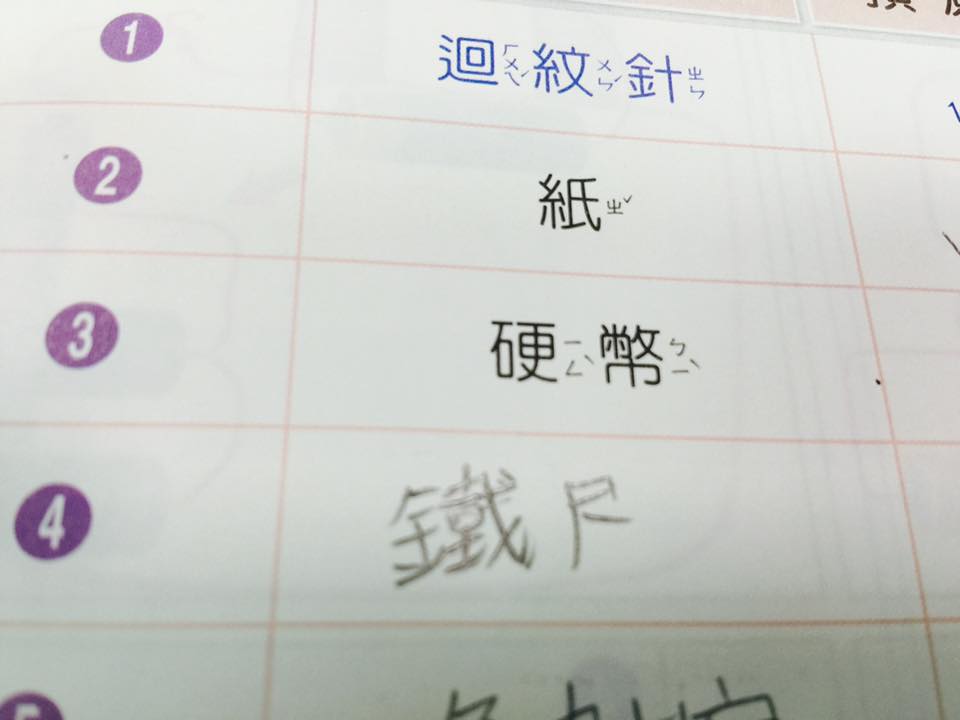 1 迴ㄏㄨㄟˊ紋ㄨㄣˊ針ㄓㄣ
2 紙ㄓˇ
3 硬ㄧㄥˋ幣ㄅㄧˋ
4 鐵尺
5